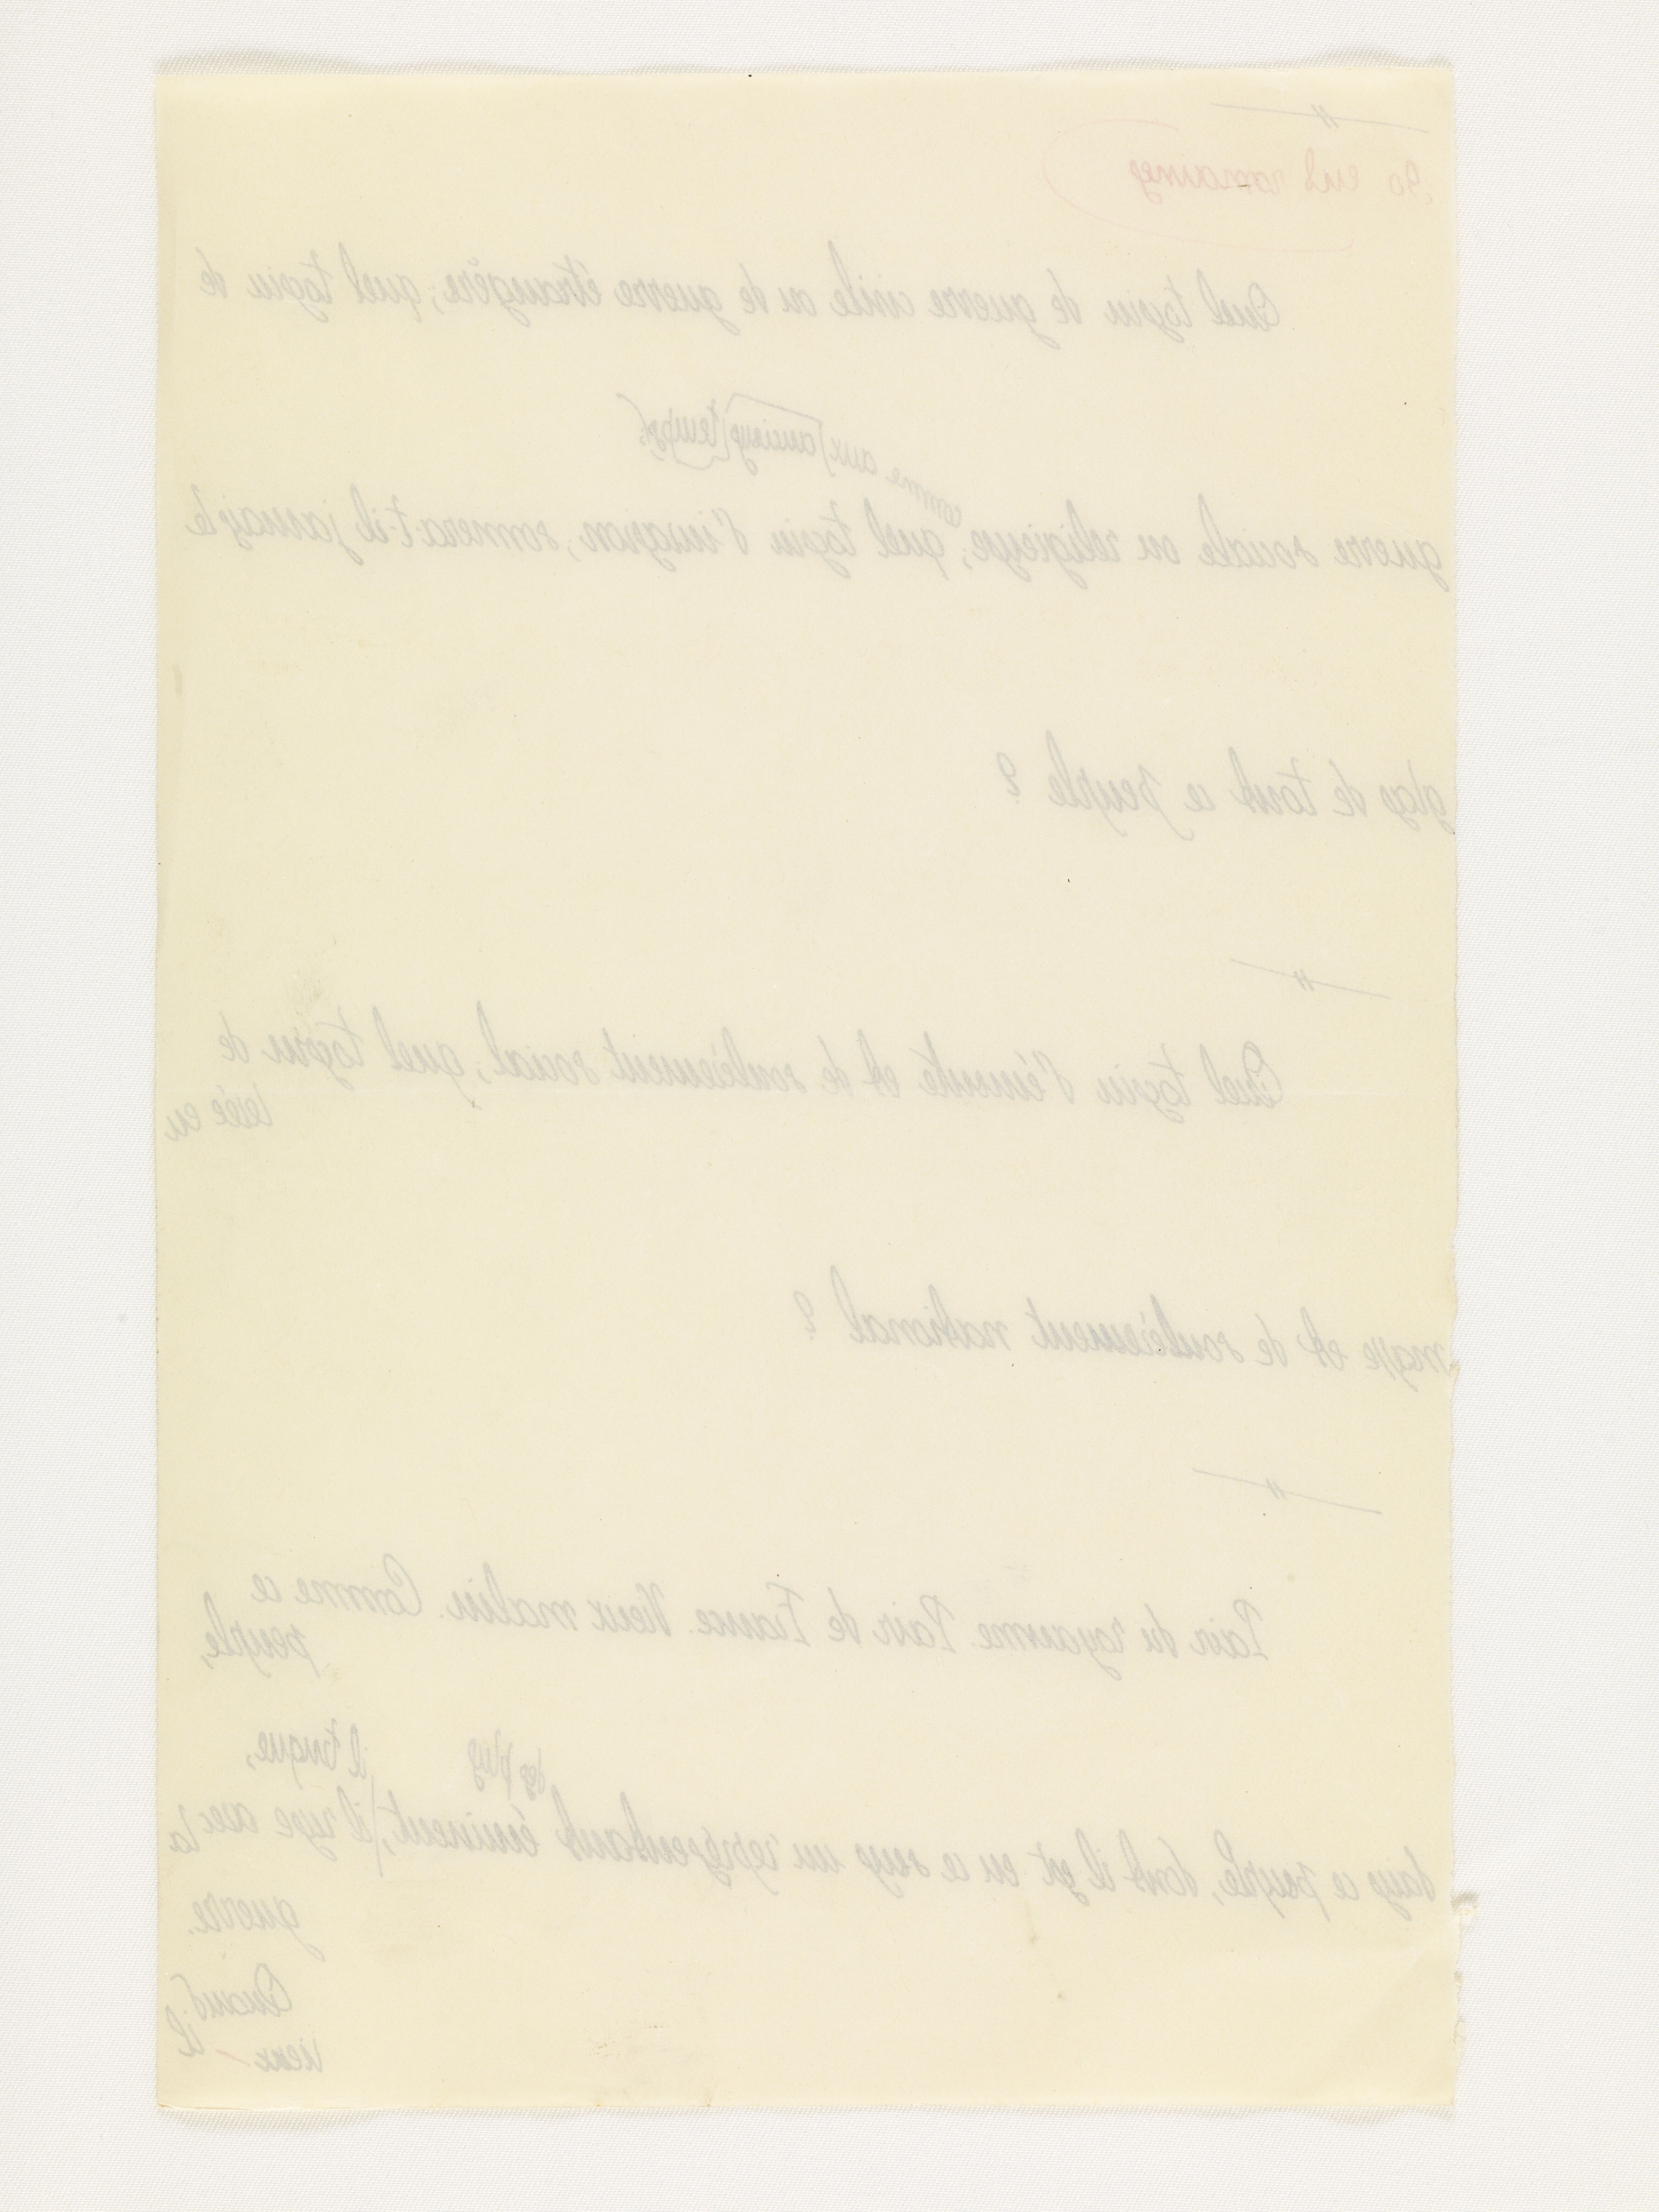 "
90 en romaines
Quel tocsin de guerre civile ou de guerre étrangère; quel tocsin de
comme aux anciens temps,
guerre sociale ou religieuse, quel tocsin d'invasion, sonnera-t-il jamais le
glas de tout ce peuple ?
"
Quel tocsin d'émeute et de soulèvement social; quel tocsin de
levée en
masse et de soulèvement national ?
"
Pair du royaume. Pair de France. Vieux malin. Comme ce
peuple,
il truque,
des plus
dans ce peuple, dont il est en ce sens un représentant éminent, il ruse avec la
guerre.
Quand il
vieux